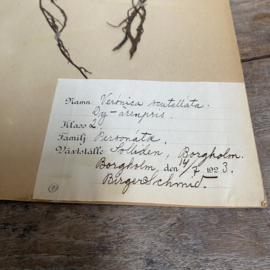 Namn Veronica scutellata.
Dy-ärenpris.
Klass 2.
Familj Personatæ.
Växtställe Solliden, Borgholm.
Borgholm, den 14/7 1923.
Birger Schmid.